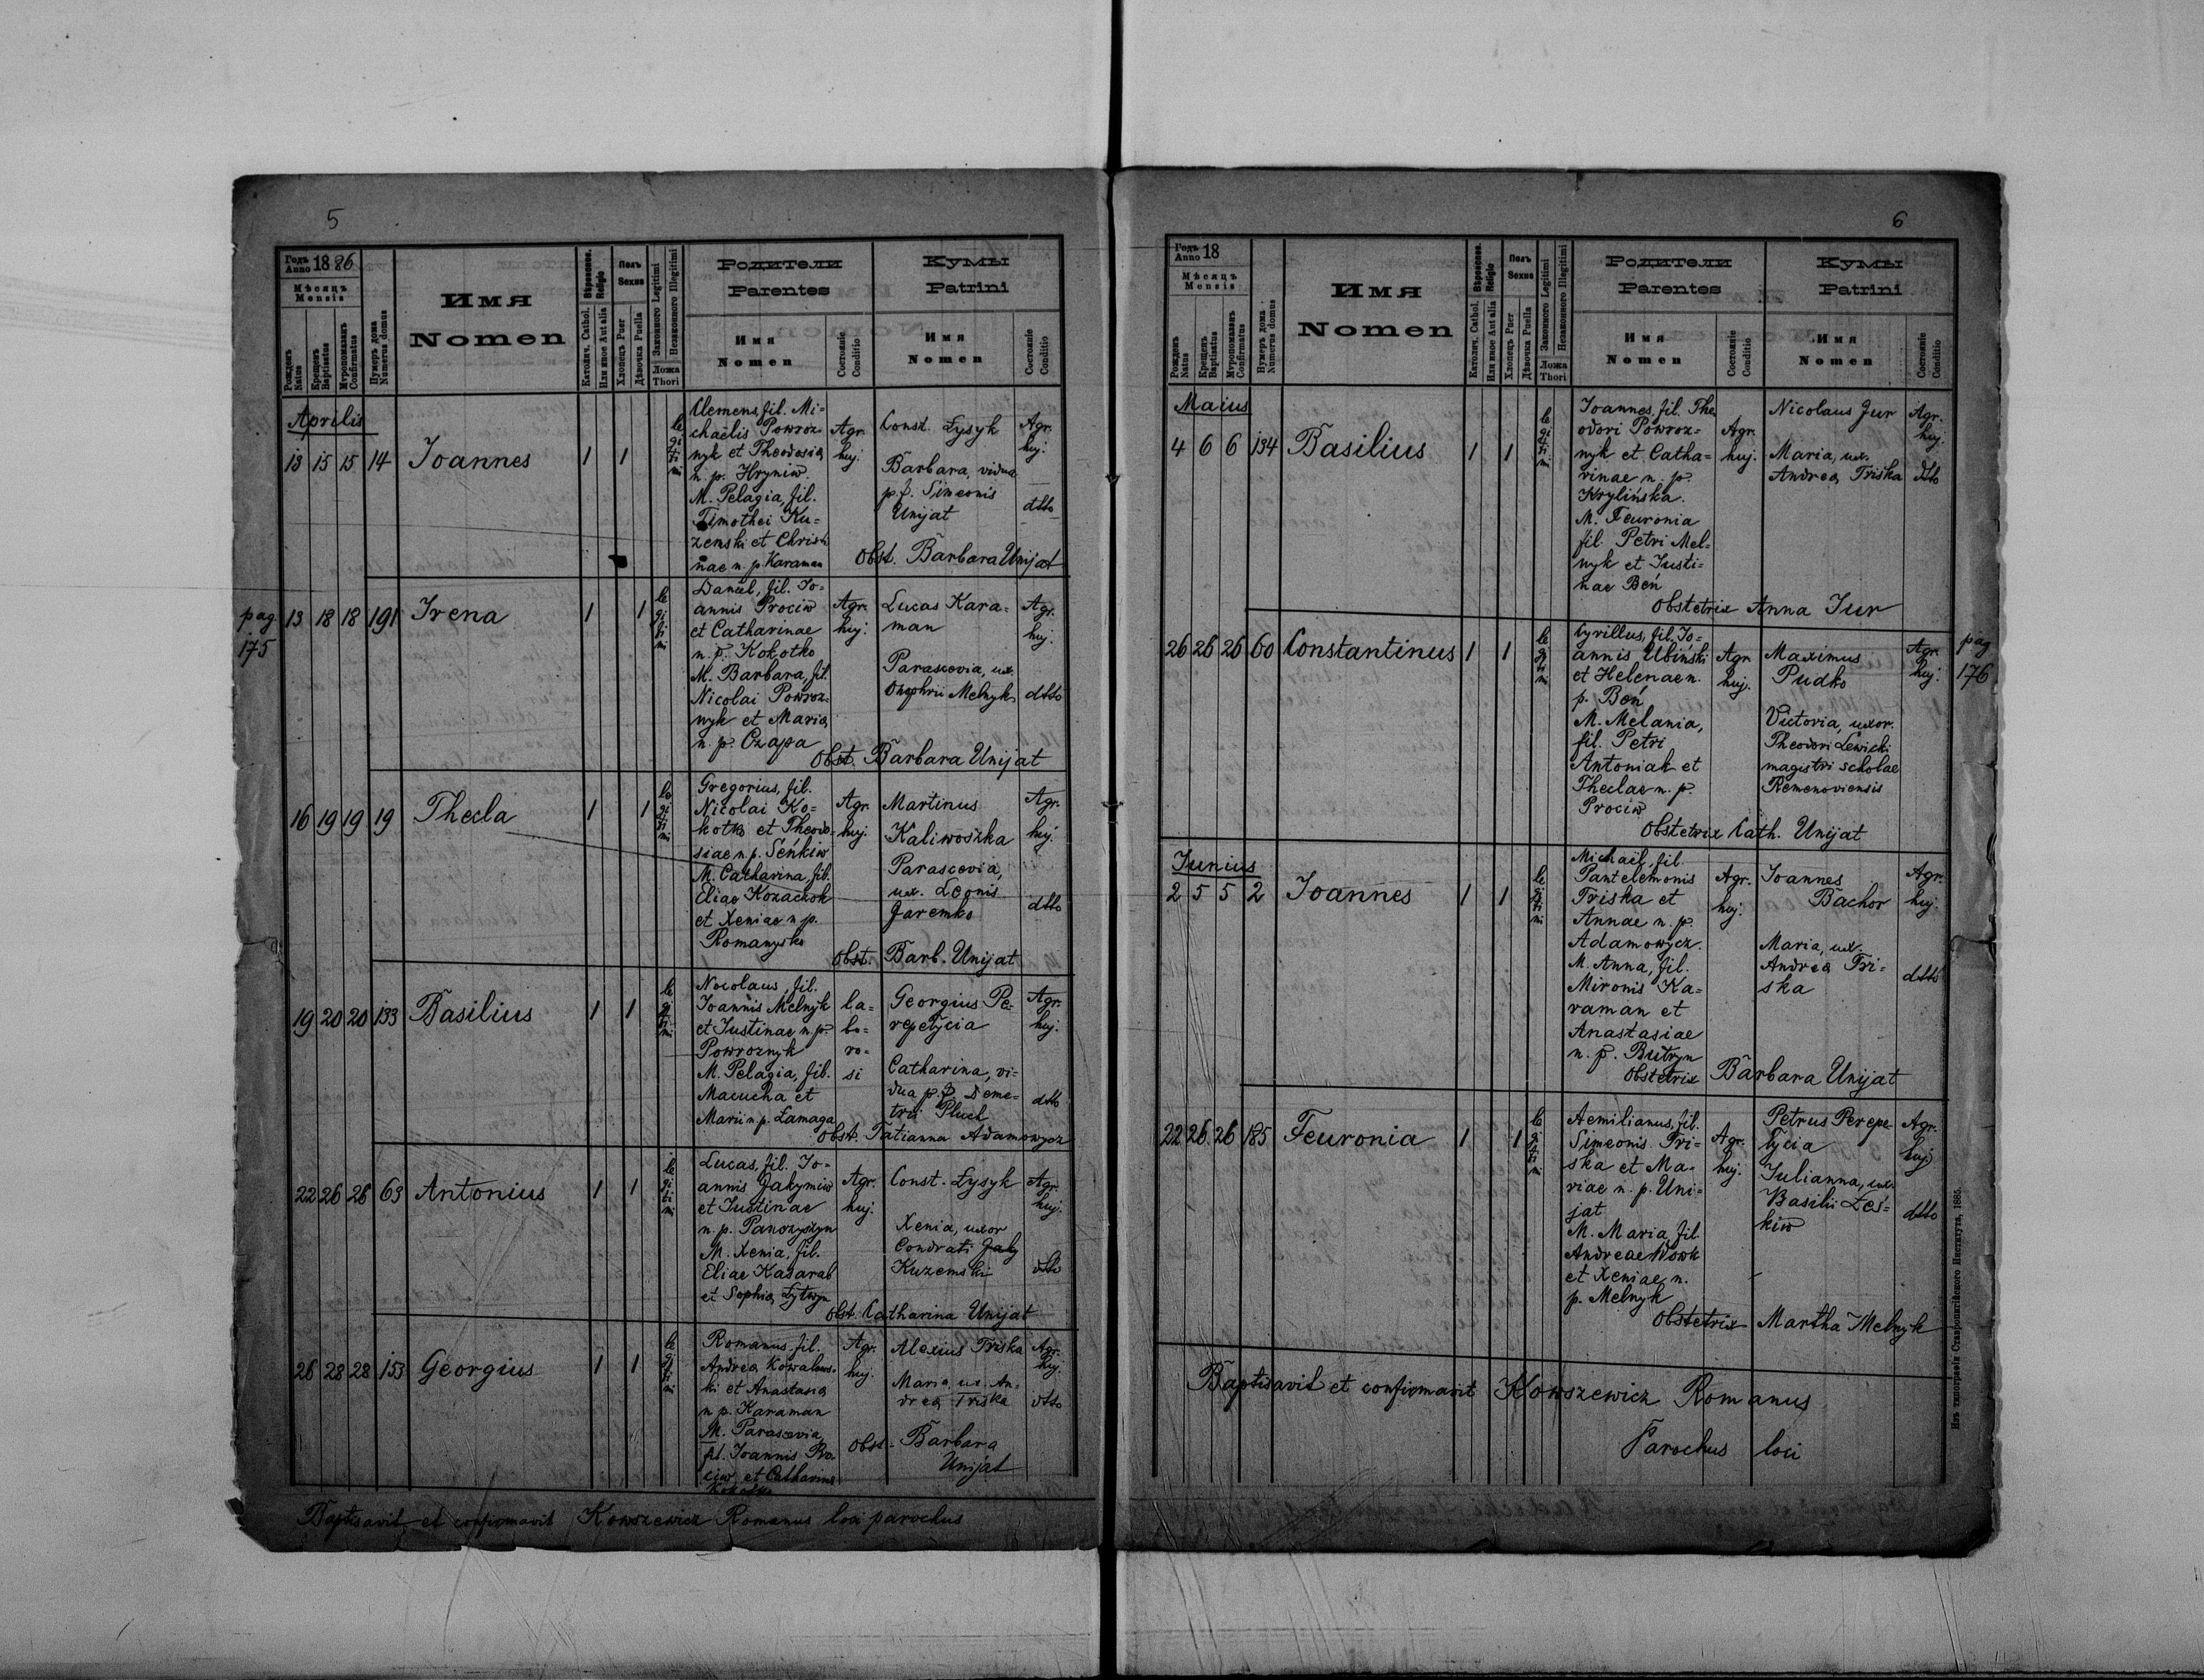 5
Годъ Anno 1886
Мѣсяцъ Mensis
Рожденъ Natus
Крещенъ Baptisatus
Муропомазанъ Confirmatus
Нумеръ дома Numerus domus
Имя
Nomen
Вѣроиспов. Religio
Католич. Cathol.
Или иное Aut alia
Полъ Sexus
Хлопецъ Puer
Дѣвочка Puella
Законного Legitimi
Незаконного Illegitimi
Ложа Thori
Родители
Parentes
Имя
Nomen
Состояніе Conditio
Кумы
Patrini
Имя
Nomen
Состояніе Conditio
Aprilis
13 15 15 14 Joannes 1 1
legitimi
Clemens, fil. Mi=
chaëlis Powroz=
nyk et Theodosia
n. p. Hryniw.
M. Pelagia, fil.
Timothei Ku=
zemski et Christi
nae n. p. Karaman
Agr. huj.
Const. Łysyk
Barbara, vidua
p. f. Simeonis
Unijat
Agr. huj.
dtto
Obst. Barbara Unijat
pag. 175
13 18 18 191 Irena 1 1
legitimi
Daniel, fil. Jo=
annis Prociw
et Catharinae
n. p. Kokotko
M. Barbara, fil.
Nicolai Powroz=
nyk et Maria
n. p. Czapa
Agr. huj.
Lucas Kara=
man
Parascevia, ux.
Onophrii Melnyk
Agr. huj.
dtto
Obst. Barbara Unijat
16 19 19 19 Thecla 1 1
legitimi
Gregorius, fil.
Nicolai Ko=
kotko et Theodo=
siae n. p. Seńkiw
M. Catharina, fil.
Eliae Kozaczok
et Xeniae n. p.
Romanysko
Agr. huj.
Martinus
Kaliwoszka
Parascevia,
ux. Leonis
Jaremko
Agr. huj.
dtto
Obst. Barb. Unijat
19 20 20 133 Basilius 1 1
legitimi
Nicolaus, fil.
Joannis Melnyk
et Justinae n. p.
Powroznyk
M. Pelagia, fil.
Macucha et
Marii n. p. Łamaga
la=
bo=
ro=
si
Georgius Pe=
repełycia
Catharina, vi=
dua p. f. Deme=
trii Pluch
Agr. huj.
dtto
Obst. Tatianna Adamowycz
22 26 26 63 Antonius 1 1
legitimi
Lucas, fil. Jo=
annis Jakymiw
et Justinae
n. p. Panczyszyn
M. Xenia, fil.
Eliae Kasarab
et Sophia Łytwyn
Agr. huj.
Const. Łysyk
Xenia, uxor
Condrati
Kuzemski
Agr. huj.
dtto
Obst. Catharina Unijat
26 28 28 153 Georgius 1 1
legitimi
Romanus, fil.
Andrea Kowalews=
ki et Anastasia
n. p. Karaman
M. Parascevia,
fil. Joannis Pro=
ciw et Catharina
Kokotko
Agr. huj.
Alexius Triska
Maria, ux. An=
drea Triska
Agr. huj.
dtto
Obst. Barbara
Unijat
Baptisavit et confirmavit Kowszewicz Romanus loci parochus
6
Годъ Anno 18
Мѣсяцъ Mensis
Рожденъ Natus
Крещенъ Baptisatus
Муропомазанъ Confirmatus
Нумеръ дома Numerus domus
Имя
Nomen
Вѣроиспов. Religio
Католич. Cathol.
Или иное Aut alia
Полъ Sexus
Хлопецъ Puer
Дѣвочка Puella
Законного Legitimi
Незаконного Illegitimi
Ложа Thori
Родители
Parentes
Имя
Nomen
Состояніе Conditio
Кумы
Patrini
Имя
Nomen
Состояніе Conditio
Maius
4 6 6 134 Basilius 1 1
legitimi
Joannes, fil. The
odori Powroz=
nyk et Catha=
rinae n. p.
Krylińska.
M. Feuronia
fil. Petri Mel=
nyk et Justi=
nae Beń
Agr. huj.
Nicolaus Jur
Maria, ux.
Andrea Triska
Agr. huj.
dtto
Obstetrix Anna Jur
26 26 26 60 Constantinus 1 1
legitimi
Cyrillus, fil. Jo=
annis Ubiński
et Helenae n.
p. Beń
M. Melania,
fil. Petri
Antoniak et
Theclae n. p.
Prociw
Agr. huj.
Maximus
Pudko
Victoria, uxor.
Theodori Lewicki
magistri scholae
Remenoviensis
Agr. huj.
pag 176
Obstetrix Cath. Unijat
Junius
2 5 5 2 Joannes 1 1
legitimi
Michaël, fil.
Pantelemonis
Triska et
Annae n. p.
Adamowycz.
M. Anna, fil.
Mironis Ka=
raman et
Anastasiae
n. p. Butryn
Agr. huj.
Joannes
Bachor
Maria, ux.
Andrea Tri=
ska
Agr. huj.
dtto
Obstetrix Barbara Unijat
22 26 26 185 Feuronia 1 1
legitimi
Aemilianus, fil.
Simeonis Tri=
ska et Ma=
riae n. p. Uni=
jat
M. Maria, fil.
Andreae Wowk
et Xeniae n.
p. Melnyk
Agr. huj.
Petrus Perepe
łycia
Julianna, ux.
Basilii Leś=
kiw
Agr. huj
dtto
Obstetrix Martha Melnyk
Baptisavit et confirmavit Kowszewicz Romanus
Parochus loci
Изъ типографіи Ставропигійского Института, 1885.